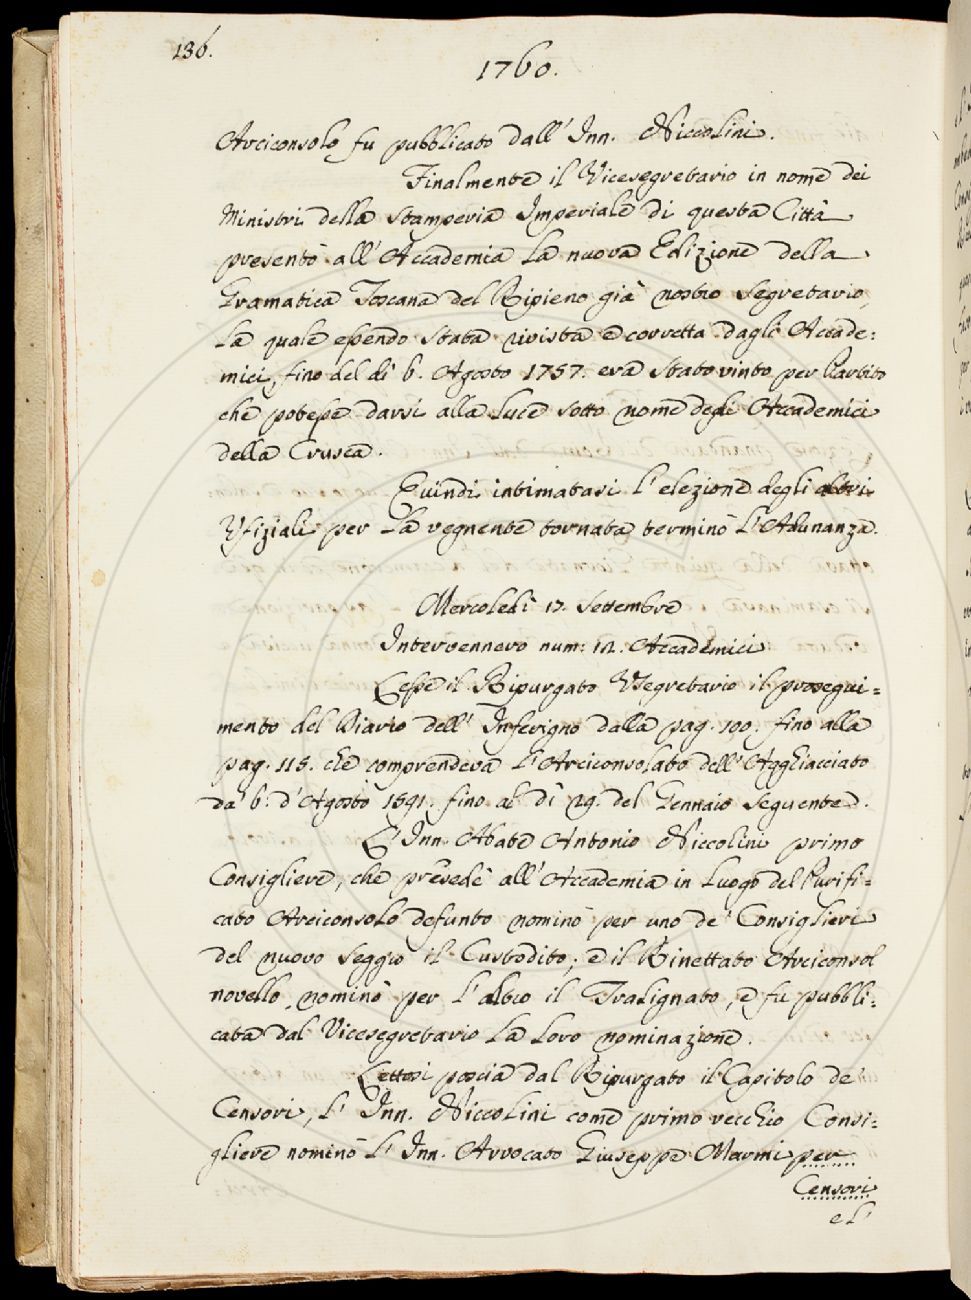 136.
1760.
Arciconsolo fu pubblicato dall' Inn. Niccolini.
Finalmente il Vicesegretario in nome dei
Ministri della Stamperia Imperiale di questa Città
presentò all' Accademia la nuova Edizione della
Gramatica Toscana del Ripieno già nostro Segretario,
la quale essendo stata rivista e corretta dagli Accade:
mici, fino del dì 6. Agosto 1757. era stato vinto per Partito
che potesse darsi alla Luce sotto nome degli Accademici
della Crusca.
Quindi intimatasi l' elezione degli altri
Ufiziali per la vegnente tornata terminò l' Adunanza.
Mercoledì 17. Settembre
Intervennero num: 12. Accademici
Lesse il Ripurgato VSegretario il prosegui=
mento del Diario dell' Inferigno dalla pag. 100. fino alla
pag. 115. che comprendeva l' Arciconsolato dell' Agghiacciato
da' 6. d' Agosto 1591. fino al dì 29. del Gennaio seguente.
L' Inn. Abate Antonio Niccolini primo
Consigliere, che presedè all' Accademia in luogo del Purifi=
cato Arciconsolo defunto nominò per uno de' Consiglieri
del nuovo seggio il Custodito; e il Rinettato Arciconsol
novello, nominò per l' altro il Tralignato, e fu pubbli:
cata dal Vicesegretario la loro nominazione.
Lettosi poscia dal Ripurgato il Capitolo de'
Censori, l' Inn. Niccolini come primo vecchio Consi:
gliere nominò l' Inn. Avvocato Giuseppe Marmi per
Censori
e l'